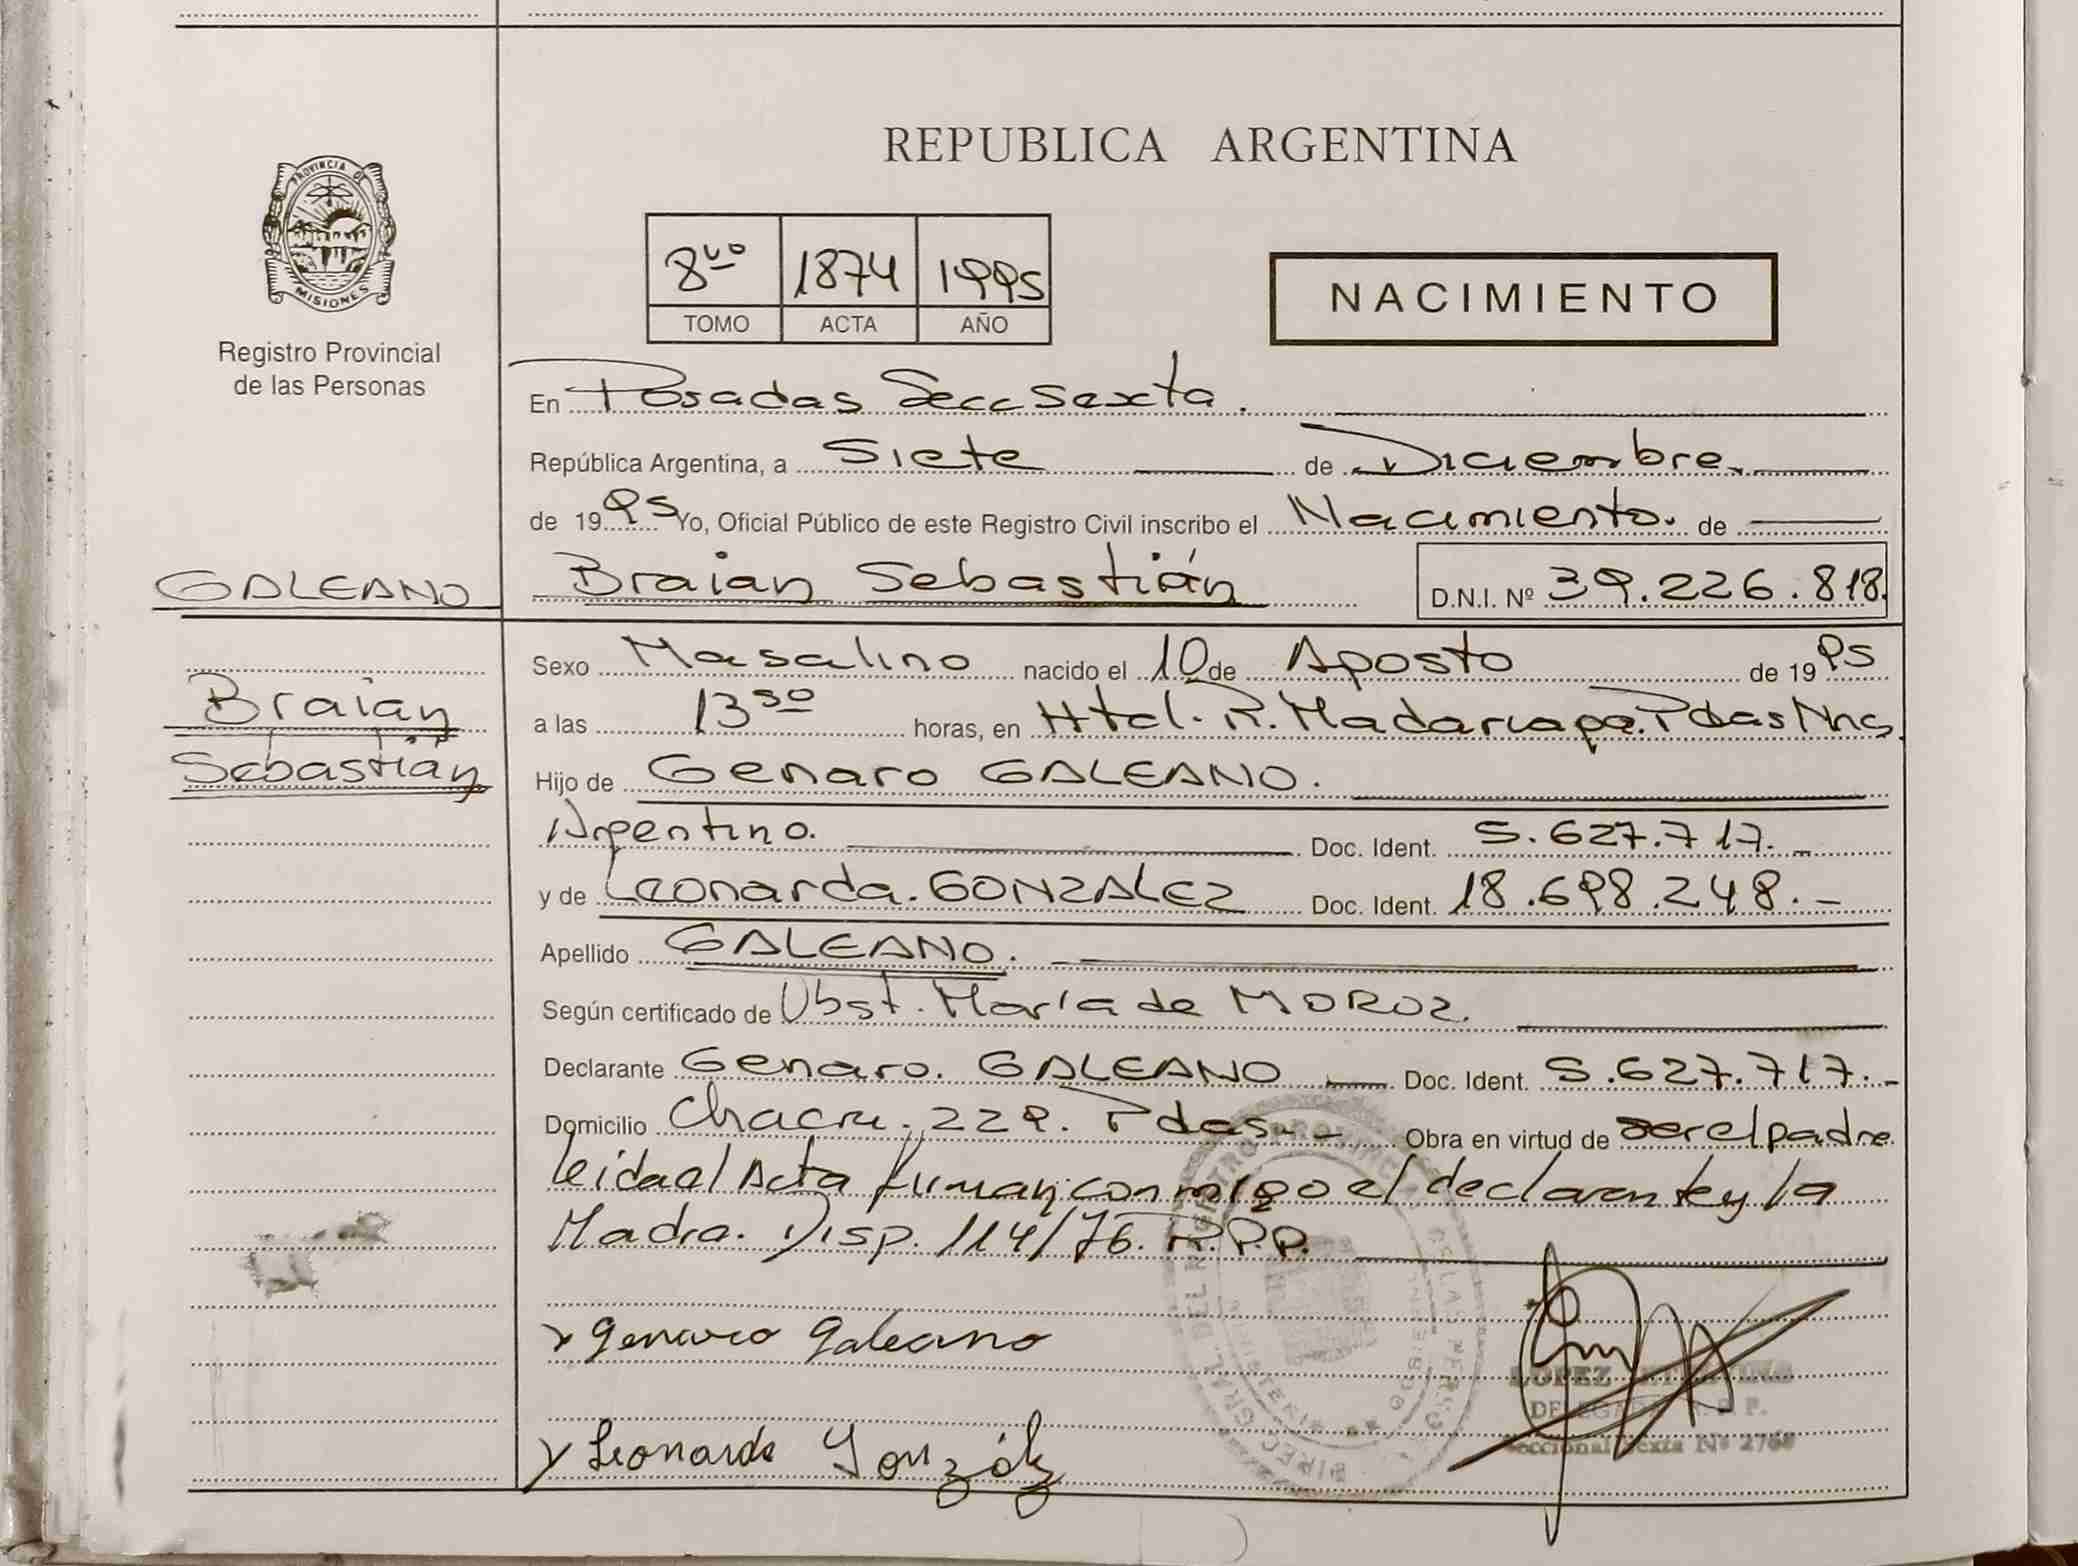 REPUBLICA ARGENTINA
PROVINCIA DE
MISIONES
Registro Provincial
de las Personas
8vo 1874 1995
TOMO ACTA AÑO
NACIMIENTO
En Posadas Secc Sexta.
República Argentina, a Siete de Diciembre.
de 1995 Yo, Oficial Público de este Registro Civil inscribo el Nacimiento. de
GALEANO
Braian Sebastián D.N.I. Nº 39.226.818.
Braian
Sebastián
Sexo Masculino nacido el 10 de Agosto de 1995
a las 13 50 horas, en Htal. R. Madariaga. Pdas Mns.
Hijo de Genaro GALEANO.
Argentino. Doc. Ident. 5.627.717.-
y de Leonarda. GONZALEZ Doc. Ident. 18.698.248.-
Apellido GALEANO.
Según certificado de Obst. María de MOROZ.
Declarante Genaro. GALEANO Doc. Ident. 5.627.717.-
Domicilio Chacra. 229. Pdas-- Obra en virtud de ser el padre
leida el Acta firman conmigo el declarante y la
Madre. Disp. 114/76. R.P.P.
Genaro Galeano
Leonarda González
LOPEZ
Seccional Sexta Nº